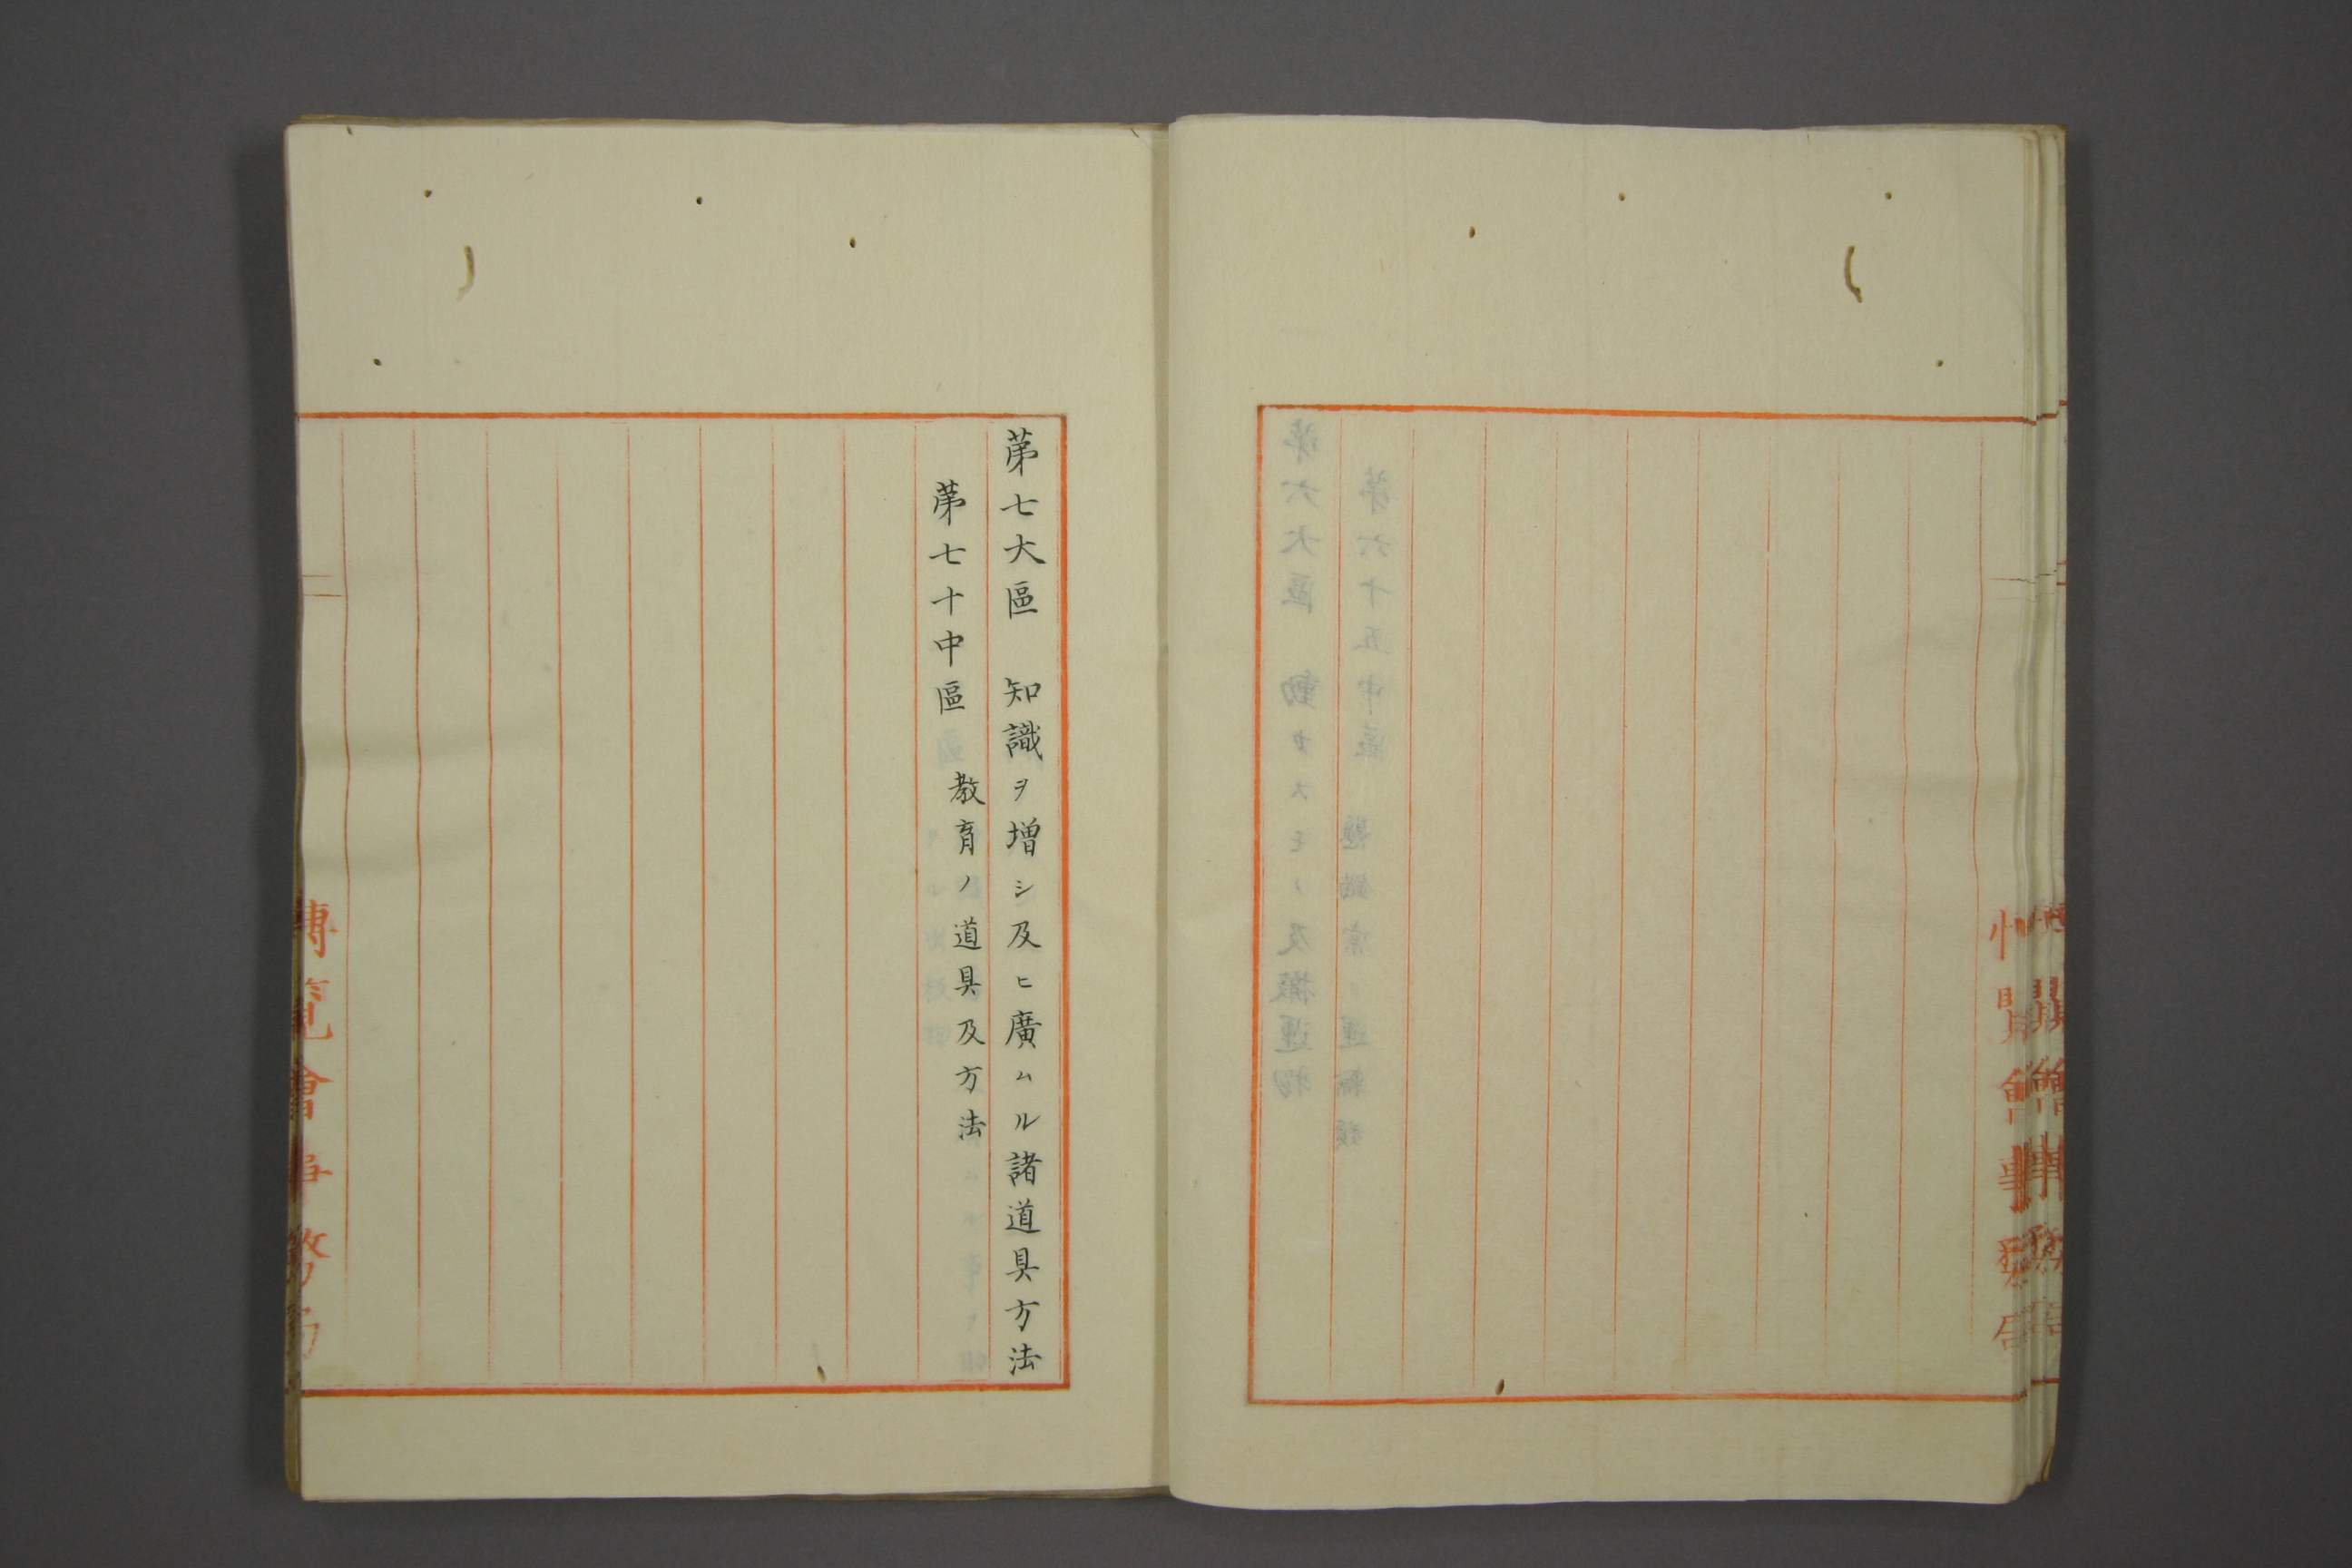 第七大區　知識ヲ增シ及ヒ廣ムル諸道具方法
第七十中區　教育ノ道具及方法
博覽會事務局